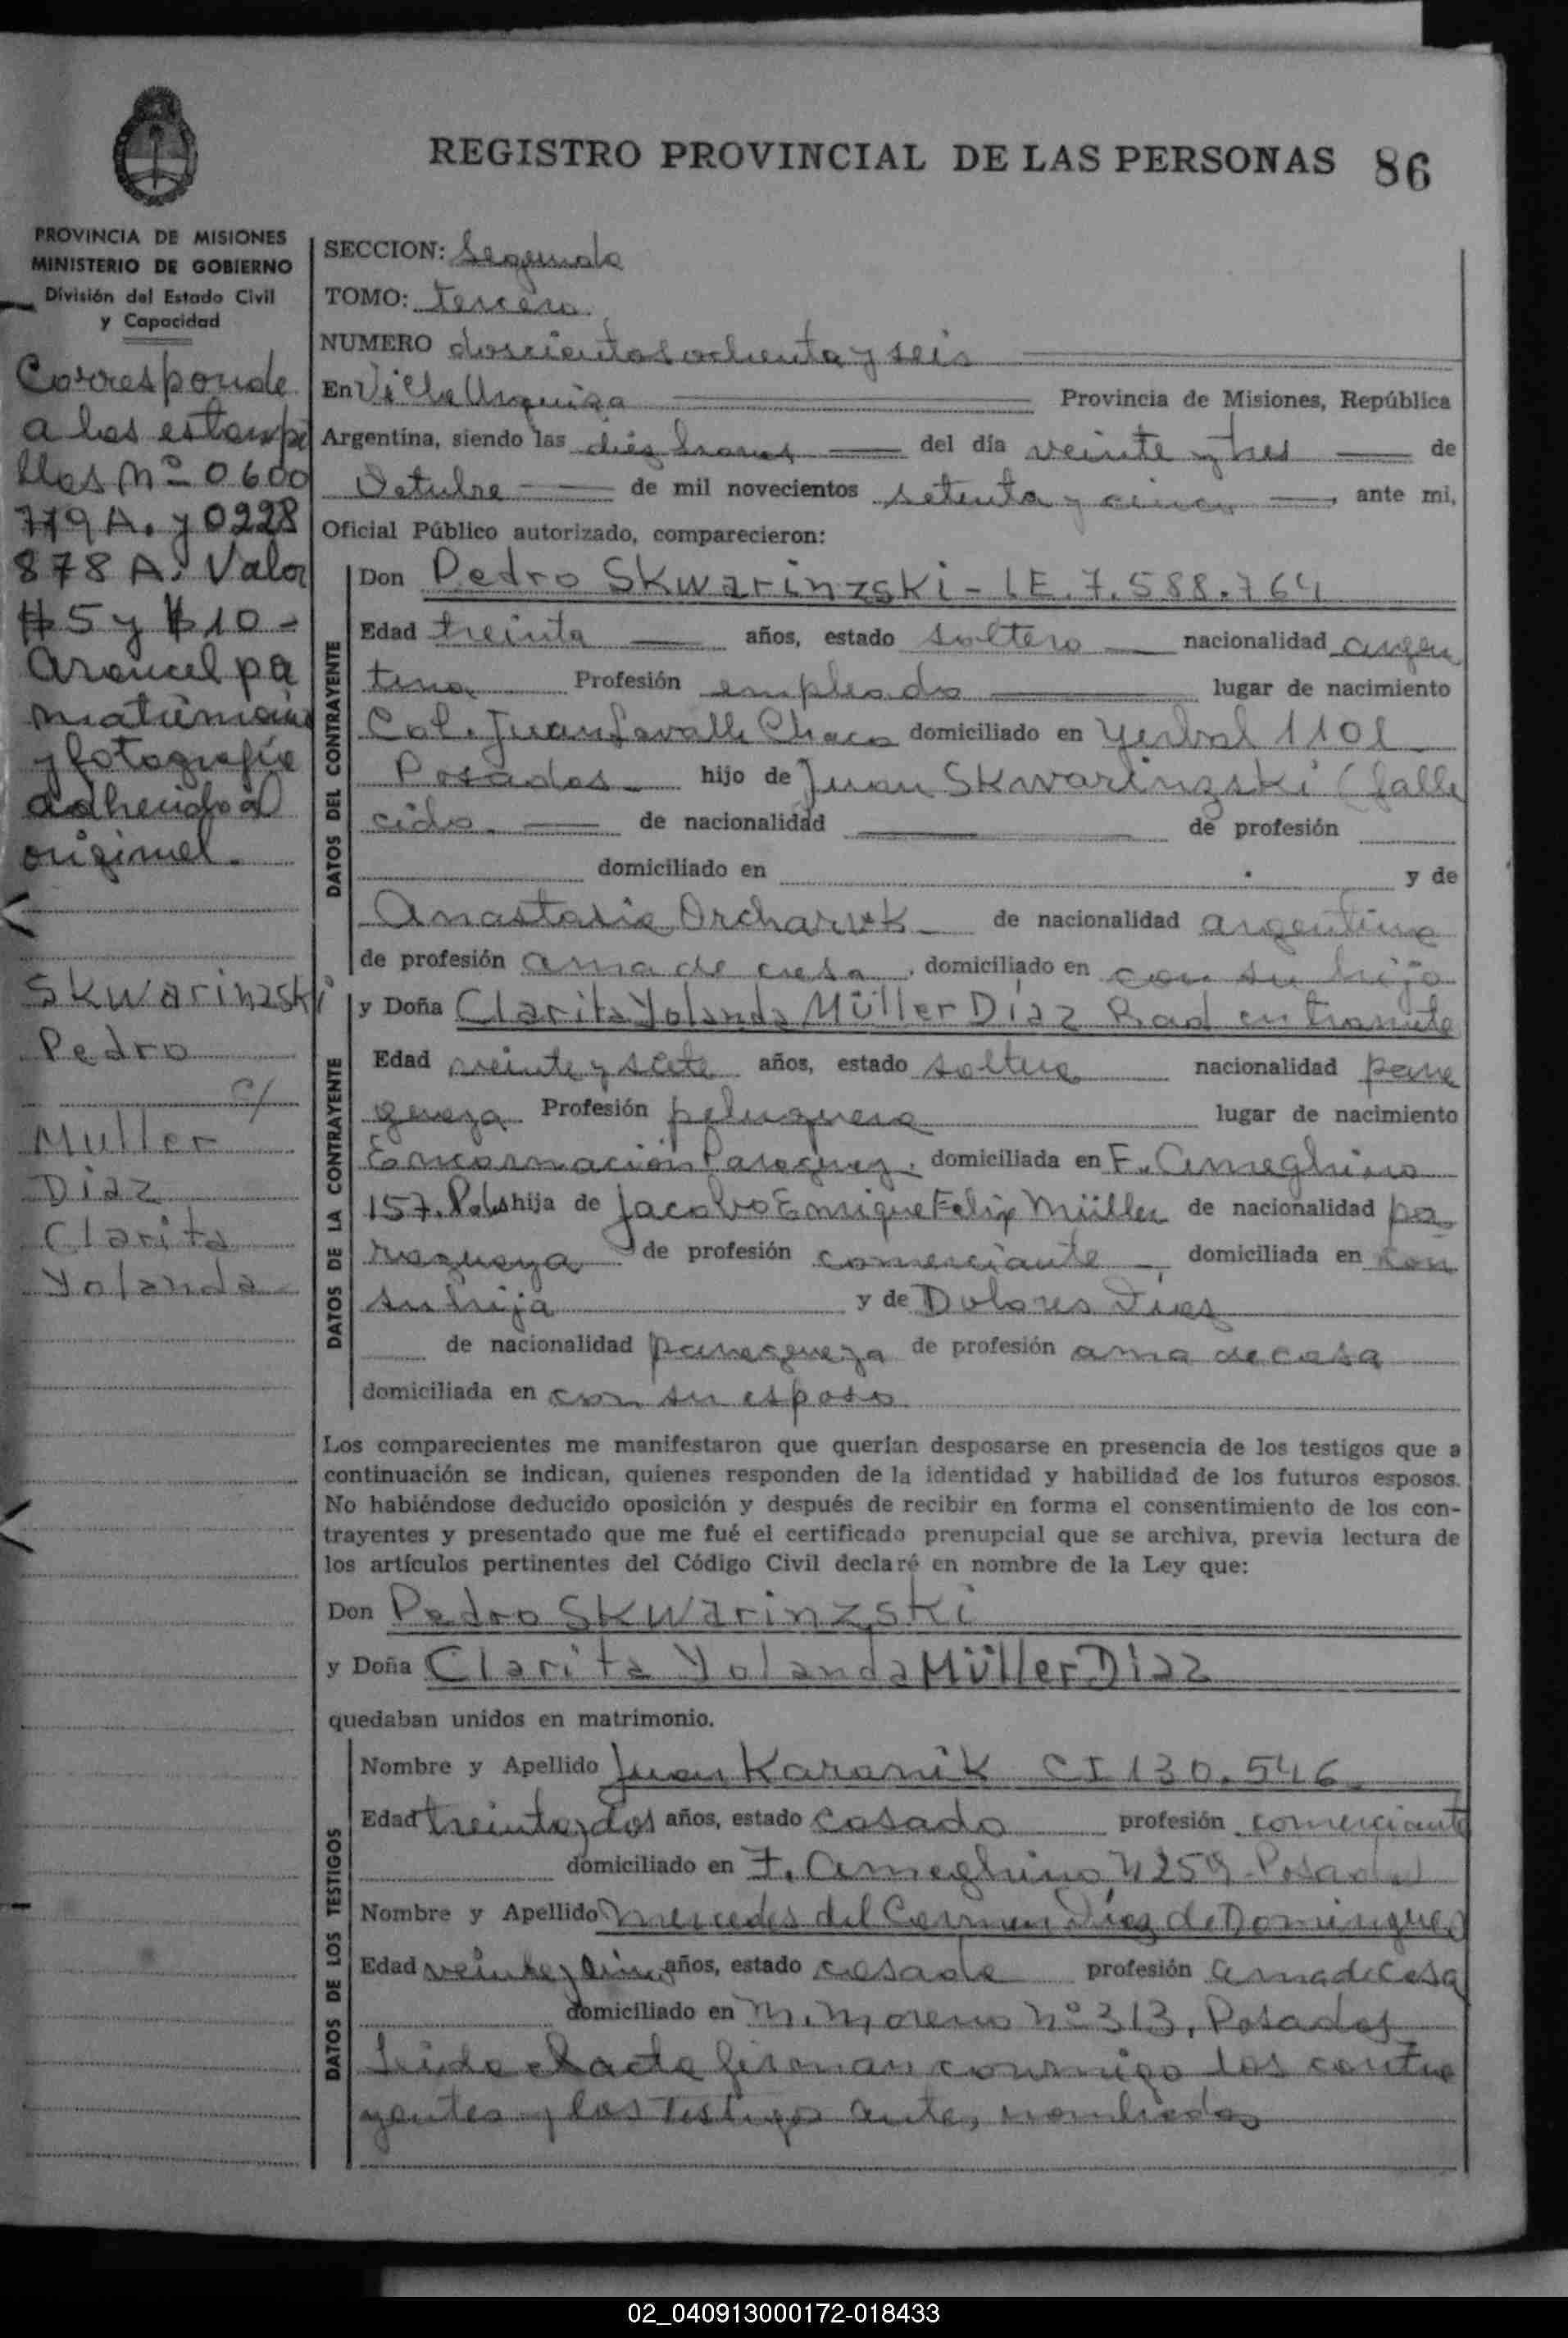 REGISTRO PROVINCIAL DE LAS PERSONAS 86
PROVINCIA DE MISIONES
MINISTERIO DE GOBIERNO
División del Estado Civil
y Capacidad
Corresponde
a las estampi
llas Nº 0600
719 A. y 0228
878 A. Valor
$5 y $10-
arancel pa
matrimonio
y fotografia
adherido al
original.
Skwarinzski
Pedro
c/
Muller
Diaz
Clarita
Yolanda
SECCION: Segunda
TOMO: Tercero
NUMERO doscientos ochenta y seis
En Villa Urquiza Provincia de Misiones, República
Argentina, siendo las diez horas del día veinte y tres de
Octubre de mil novecientos setenta y cinco, ante mi,
Oficial Público autorizado, comparecieron:
DATOS DEL CONTRAYENTE
Don Pedro Skwarinzski - LE. 7.588.764
Edad treinta años, estado soltero nacionalidad argen
tina Profesión empleado lugar de nacimiento
Col. Juan Lavalle Chaco domiciliado en Yerbal 1101
Posadas hijo de Juan Skwarinzski (falle
cido. de nacionalidad de profesión
domiciliado en y de
Anastasia Orcharuk de nacionalidad argentina
de profesión ama de casa, domiciliado en con su hijo
DATOS DE LA CONTRAYENTE
y Doña Clarita Yolanda Müller Díaz Rad en tramite
Edad veinte y siete años, estado soltera nacionalidad para
guaya Profesión peluquera lugar de nacimiento
Encarnación Paraguay, domiciliada en F. Ameghino
157. Pdas hija de Jacobo Enrique Felix Müller de nacionalidad pa
raguaya de profesión comerciante, domiciliada en con
su hija y de Dolores Diaz
de nacionalidad paraguaya de profesión ama de casa
domiciliada en con su esposo
Los comparecientes me manifestaron que querían desposarse en presencia de los testigos que a
continuación se indican, quienes responden de la identidad y habilidad de los futuros esposos.
No habiéndose deducido oposición y después de recibir en forma el consentimiento de los con-
trayentes y presentado que me fué el certificado prenupcial que se archiva, previa lectura de
los artículos pertinentes del Código Civil declaré en nombre de la Ley que:
Don Pedro Skwarinzski
y Doña Clarita Yolanda Müller Diaz
quedaban unidos en matrimonio.
DATOS DE LOS TESTIGOS
Nombre y Apellido Juan Karanik CI 130.546
Edad treinta y dos años, estado casado profesión comerciante
domiciliado en F. Ameghino 4259 Posadas
Nombre y Apellido Mercedes del Carmen Díaz de Dominguez
Edad veinte y cinco años, estado casada profesión ama de casa
domiciliado en M. Moreno Nº 313, Posadas
Leido el acta firman conmigo los contra
yentes y los testigos antes nombrados
02_040913000172-018433